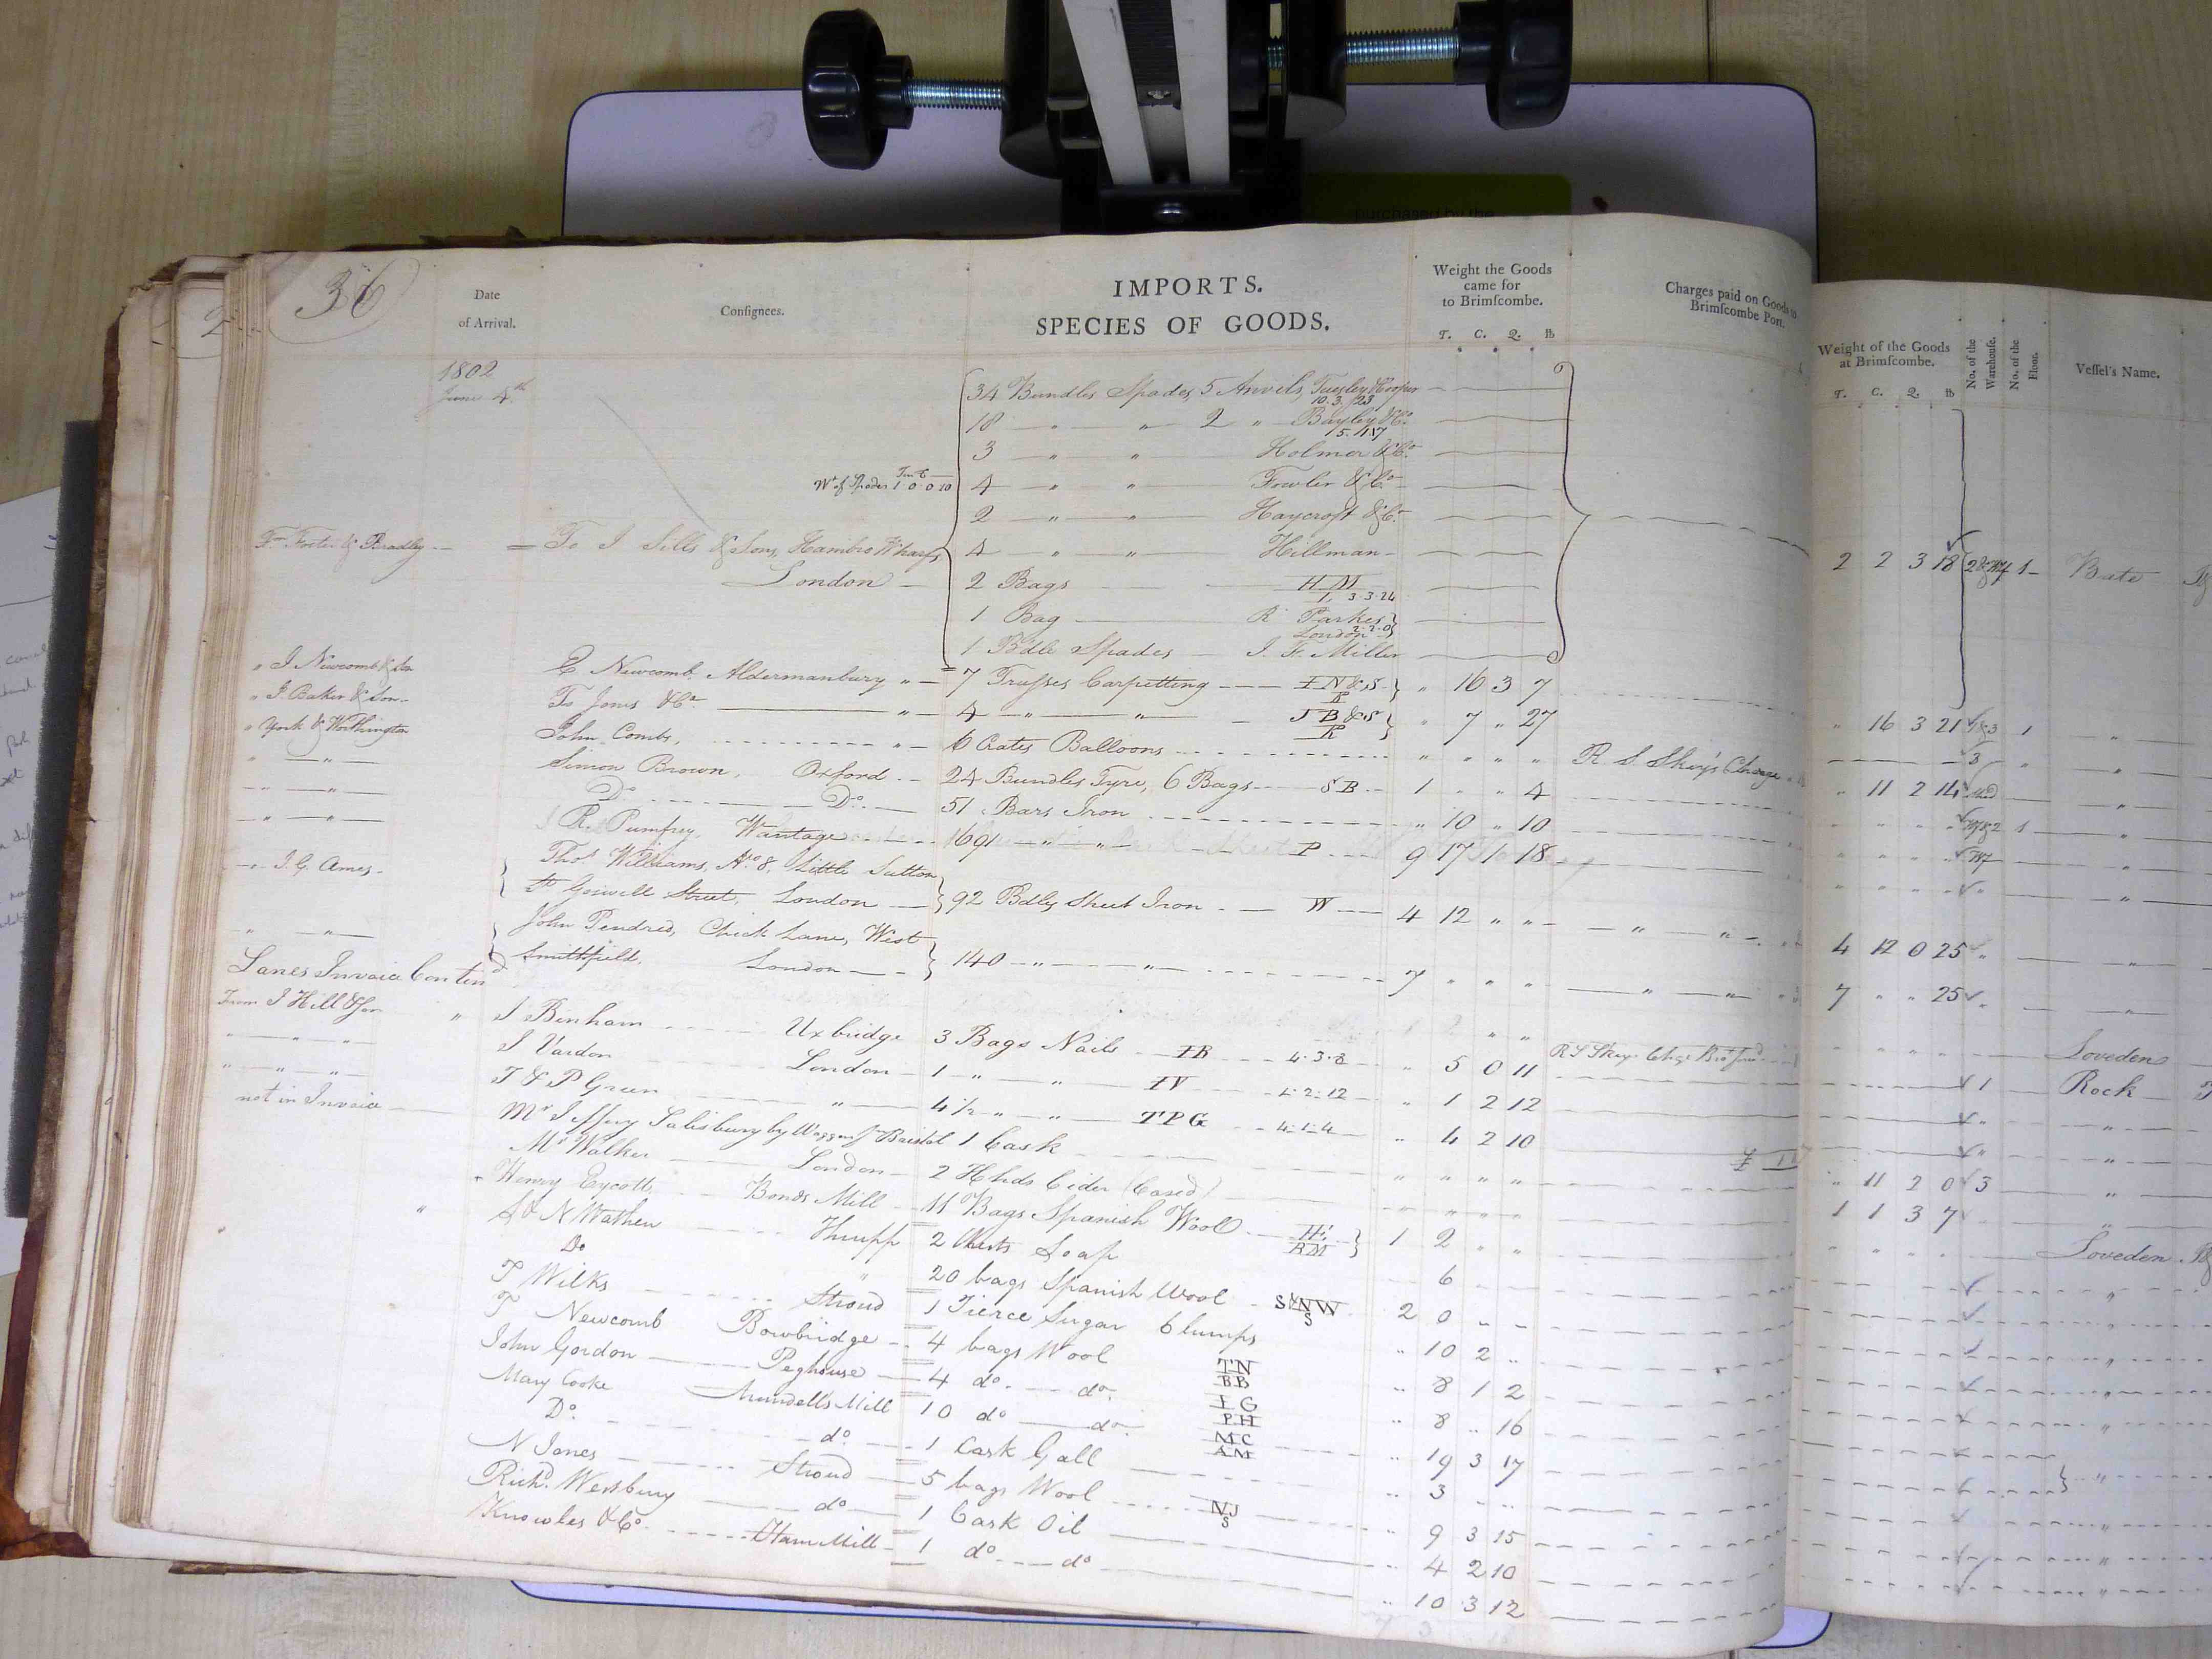 36
Date
of Arrival.
Consignees.
IMPORTS.
SPECIES OF GOODS.
Weight the Goods
came for
to Brimscombe.
T. C. Q. lb
Charges paid on Goods to
Brimscombe Port.
Weight of the Goods
at Brimscombe.
T. C. Q. lb
No. of the
Warehouse.
No. of the
Floor.
Vessel's Name.
1802
June 4th
34 Bundles Spades 5 Anvils,
10.3.23
18 — " — " 2 " Bayley & Co.
3 " " Holmer & Co.
Wt of Spades 1 0 0 10 4 " " Fowler & Co.
2 " " Haycroft & Co.
Fm Foster & Bradley To J Sills & Sons, Hambro Wharf, 4 " " Hillman 2 2 3 18 1 Bate
London 2 Bags HM
1 Bag R Parkes
London 2.2.0
1 Bdle Spades J. F. Miller
" J Newcomb & Son Newcomb, Aldermanbury " 7 Trusses Carpetting IN&S R " 16 3 7 " 16 3 21 1 "
" J. Baker & Son To Jones & Co " 4 " " JB&S R " 7 " 27
" York & Worthington John Combs, " 6 Crates Balloons " " " " R. S. Skey's Charge " 11 2 14
" " Simon Brown, Oxford 24 Bundles Tyre, 6 Bags SB 1 " " 4
" Do Do 51 Bars Iron " 10 " 10
" R. Pumfrey, Wantage 1691 " " P 9 17 1 18
" J. G. Ames Thos Williams, No 8, Little Sutton
St Goswell Street, London 92 Bdls Sheet Iron W 4 12 " " " " 4 12 0 25 "
" " John Pendred, Chick Lane, West
Smithfield, London 140 " " 7 " " " " " 7 " " 25 "
Lanes Invoice Contind
From J Hill & Son " J Benham Uxbridge 3 Bags Nails IB 4.3.8 " 5 0 11 Loveden
" " " J Vardon London 1 " " IV 1.2.12 " 1 2 12 1 Rock
" " " T & P Green " 4½ " " TPG 4.1.4 " 4 2 10
not in Invoice Mr Jeffery Salisbury by Waggon fm Bristol 1 Cask " " " "
Mr Walker London 2 Hhds Cider (Cased) " " " " " 11 2 0 3 "
Henry Eycott, Bonds Mill 11 Bags Spanish Wool HE BM 1 2 " " 1 1 3 7 "
S & N Wathen Thrupp 2 Chests Soap 6 Loveden
Do " 20 bags Spanish Wool S&NW S 2 0 " "
T Wilks Stroud 1 Tierce Sugar 6 lumps " 10 2 "
T Newcomb Bowbridge 4 bags Wool TN BB " 8 1 2
John Gordon Peghouse 4 do do IG PH " 8 " 16
Mary Cooke Arundells Mill 10 do do MC AM " 19 3 17
Do do 1 Cask Gall " 3 " "
N Jones Stroud 5 bags Wool NJ S " 9 3 15
Richd. Wesbury do 1 Cask Oil " 4 2 10
Knowles & Co Ham Mill 1 do do " 10 3 12